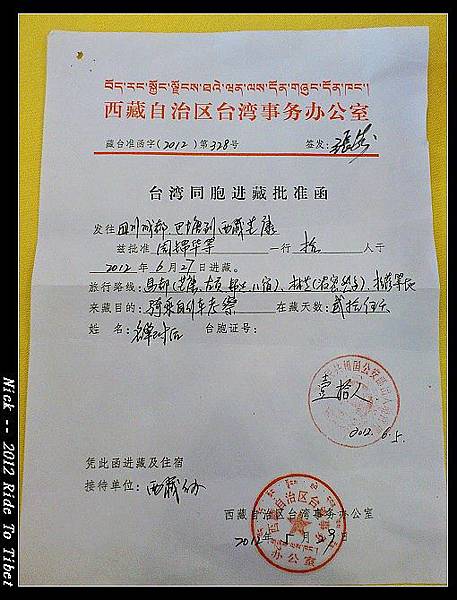 བོད་རང་སྐྱོང་ལྗོངས་ཐའེ་ཝན་ལས་དོན་གཞུང་དོན་ཁང་།
西藏自治区台湾事务办公室
藏台准函字(2012)第328号 签发:
台湾同胞进藏批准函
发往 四川成都、巴塘到西藏芒康
兹批准 周 华等 一行 拾 人于
2012 年 6 月 27 日进藏。
旅行路线: 昌都(芒康、左贡、 八宿)、林芝( )、拉萨等地
来藏目的: 骑乘自行车考察 在藏天数: 贰拾伍天
姓 名: 名单附后 台胞证号:
壹拾人
2012.6.5.
凭此函进藏及住宿
接待单位: 西藏
西藏自治区台湾事务办公室
2012年 5 月 29 日
西藏自治区台湾事务
办公室
Nick -- 2012 Ride To Tibet